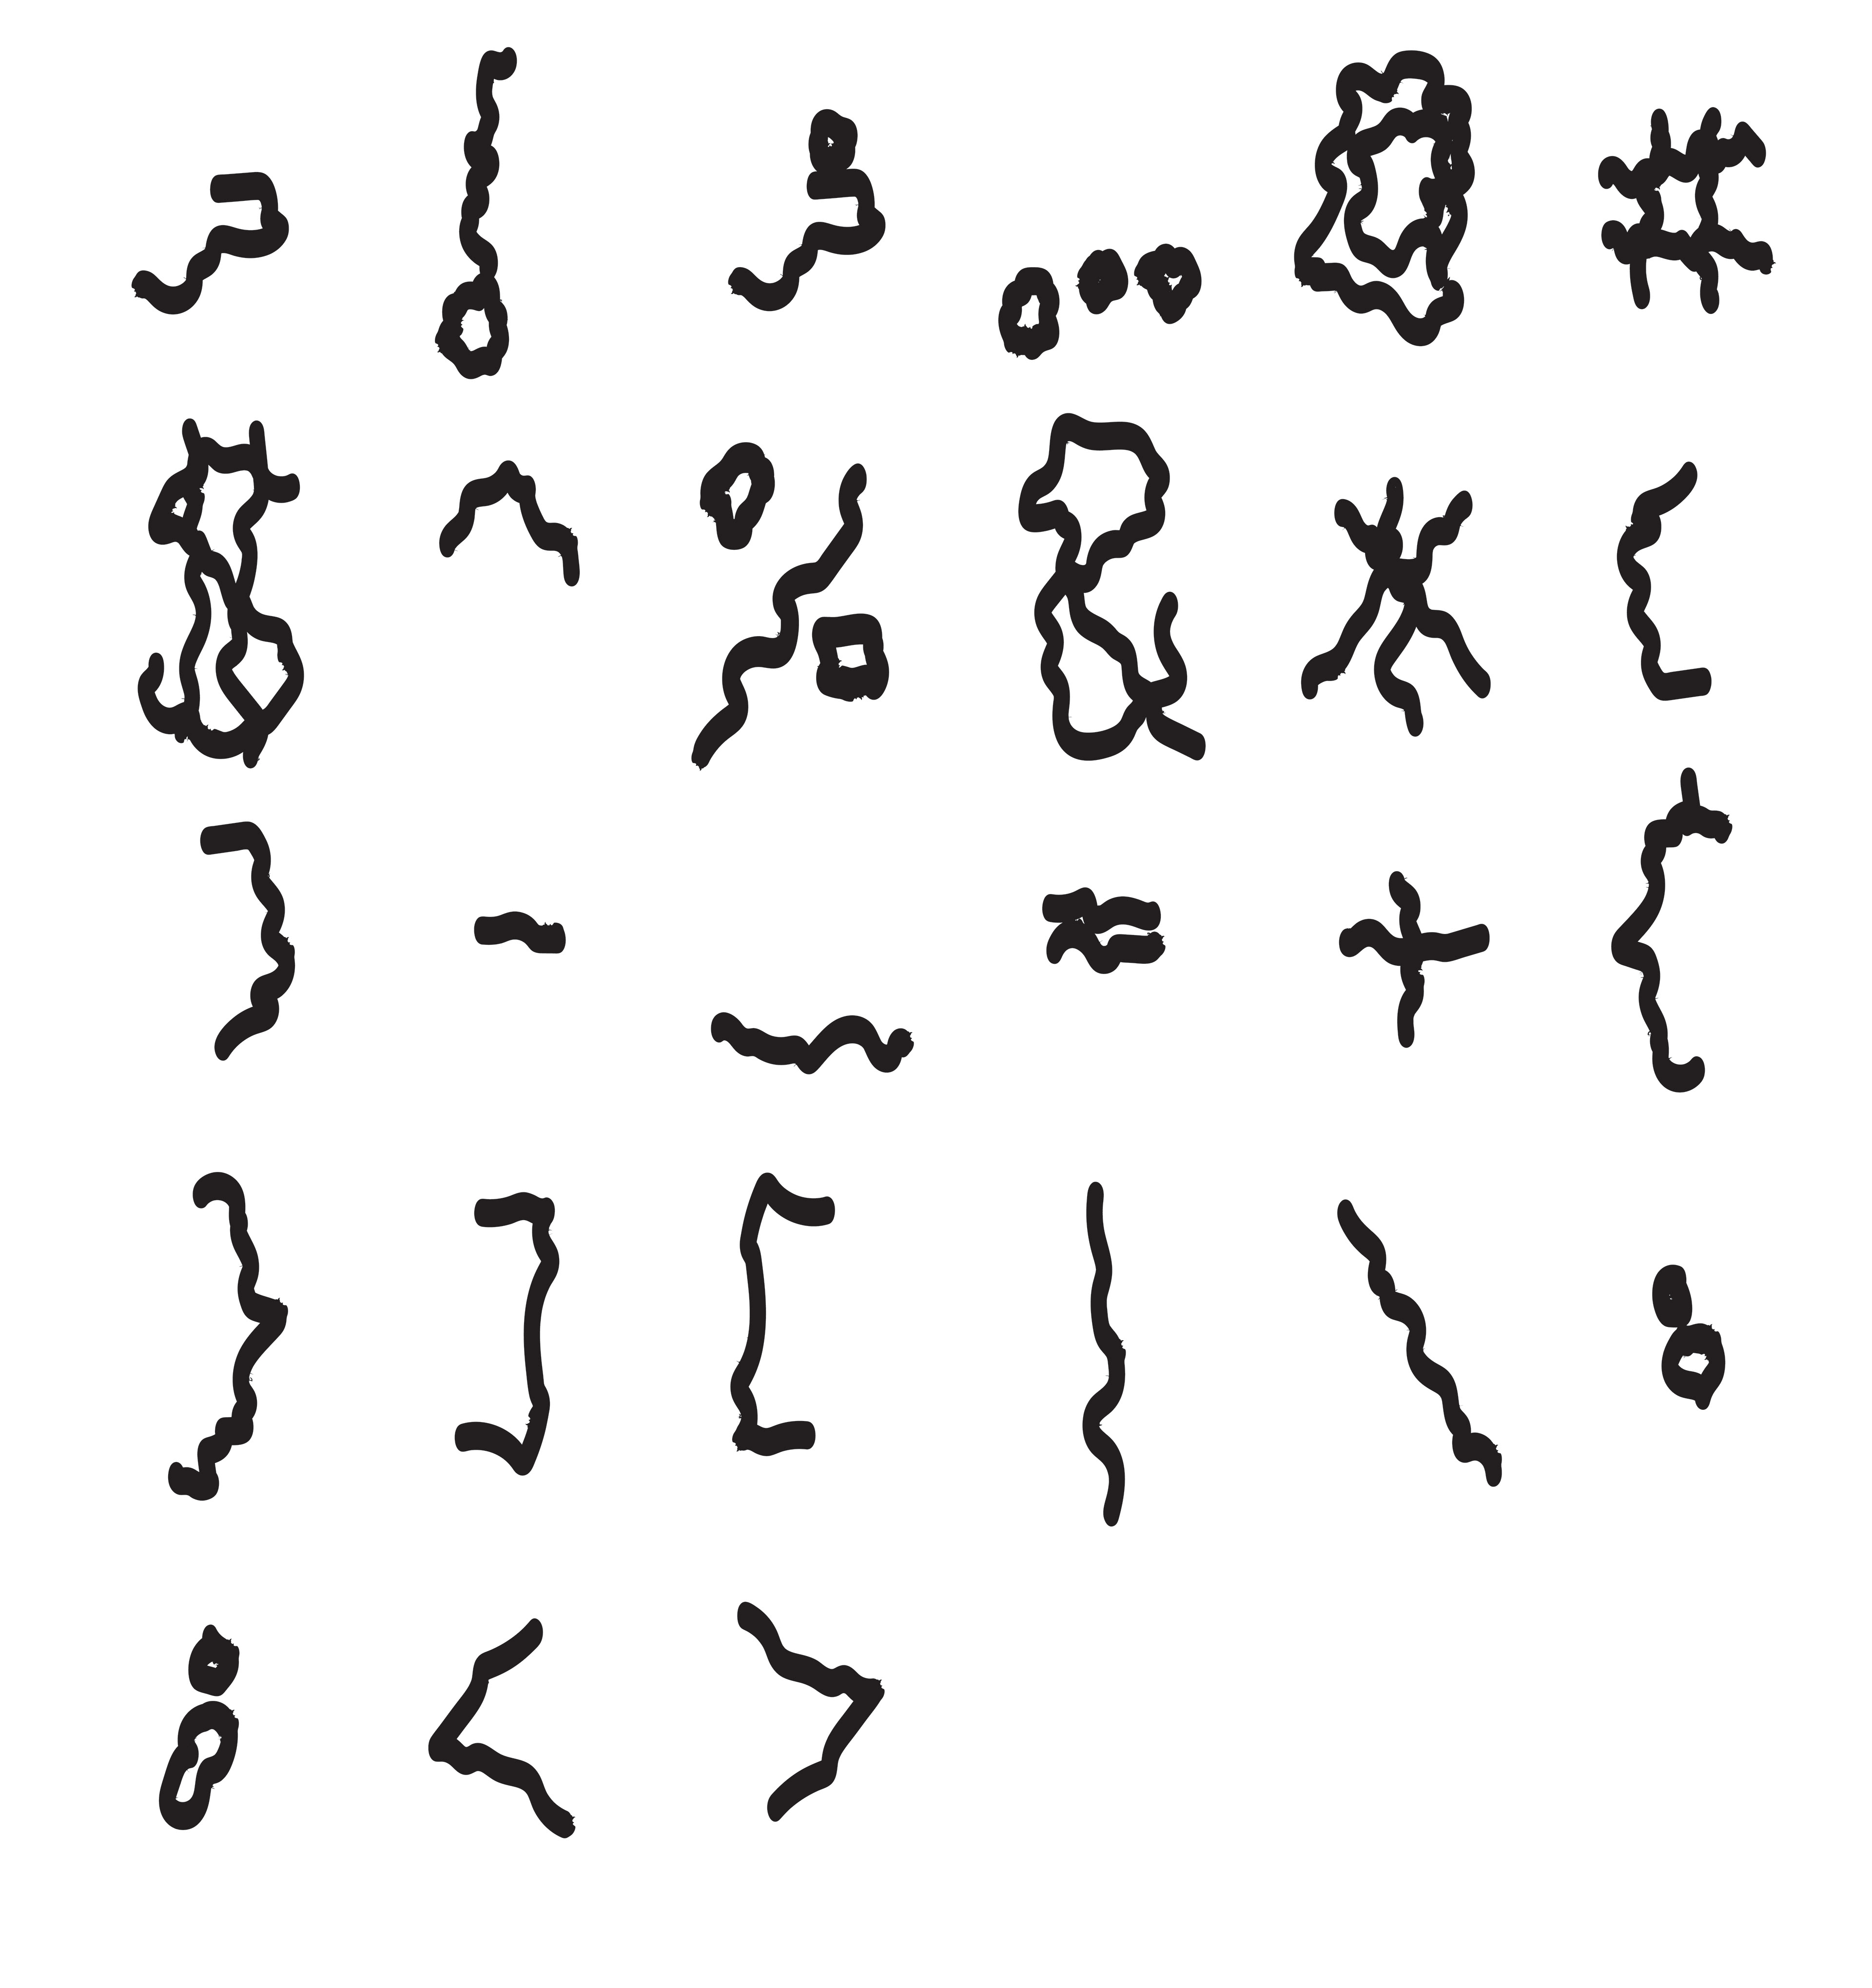 , ! ; … @ #
$ ^ % & * (
) - _ = + {
} ] [ | \ :
; < >